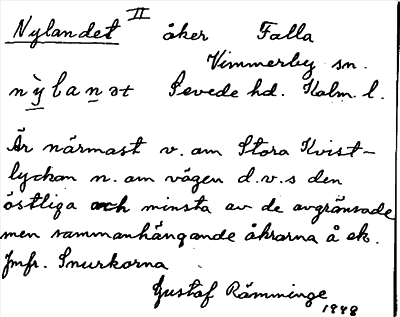 Nylandet II åker Falla
Vimmerby sn.
nỳlanət Sevede hd. Kalm. l.
Är närmast v. om Stora Kvist-
lyckan n. om vägen d.v.s den
östliga och minsta av de avgränsade
men sammanhängande åkrarna å ek.
Jmfr. Snurkorna
Gustaf Rämminge
1948